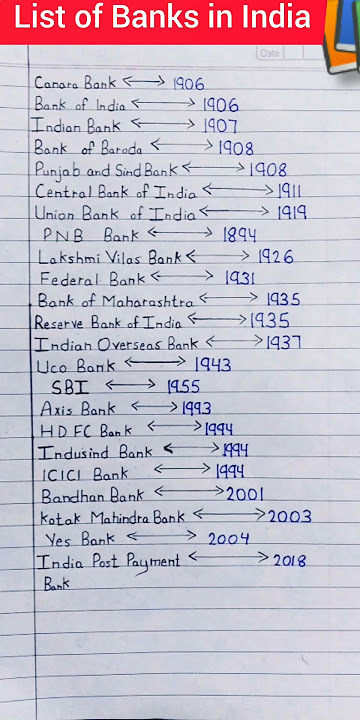 List of Banks in India
Date
Canara Bank ↔ 1906
Bank of India ↔ 1906
Indian Bank ↔ 1907
Bank of Baroda ↔ 1908
Punjab and Sind Bank ↔ 1908
Central Bank of India ↔ 1911
Union Bank of India ↔ 1919
PNB Bank ↔ 1894
Lakshmi Vilas Bank ↔ 1926
Federal Bank ↔ 1931
Bank of Maharashtra ↔ 1935
Reserve Bank of India ↔ 1935
Indian Overseas Bank ↔ 1937
Uco Bank ↔ 1943
SBI ↔ 1955
Axis Bank ↔ 1993
HDFC Bank ↔ 1994
Indusind Bank ↔ 1994
ICICI Bank ↔ 1994
Bandhan Bank ↔ 2001
Kotak Mahindra Bank ↔ 2003
Yes Bank ↔ 2004
India Post Payment ↔ 2018
Bank